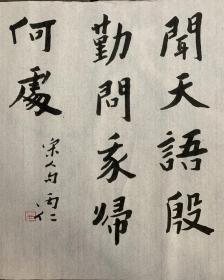 聞天語殷
勤問我歸
何處
宋人句